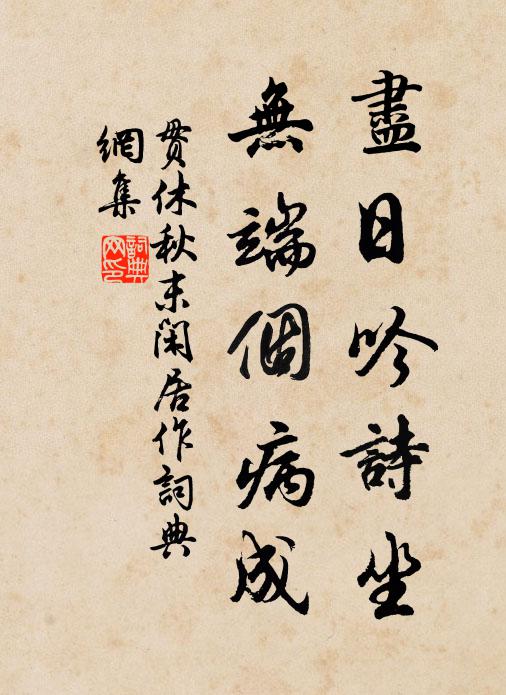 盡日吟詩坐
無端個病成
貫休秋末閑居作詞典
網集
詞典
网印